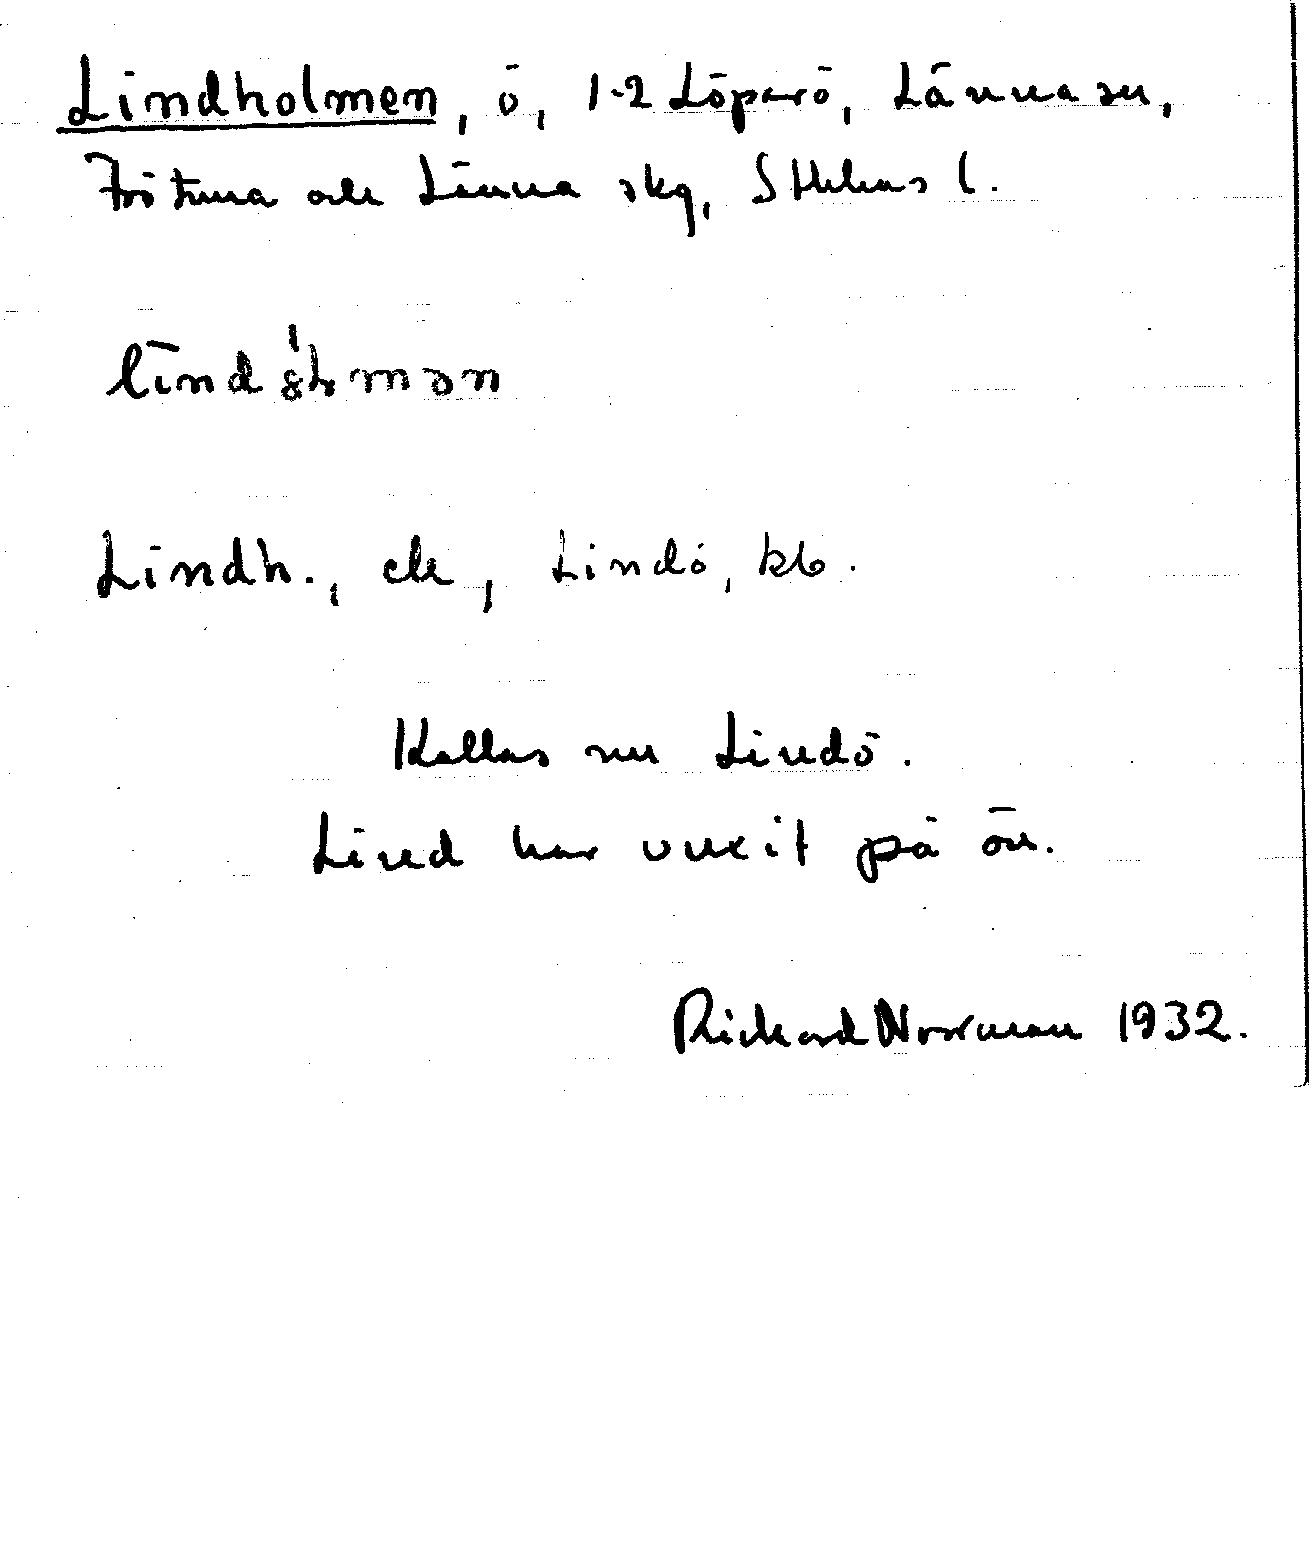 Lindholmen, ö, 1-2 Löparö, Länna sn,
Frötuna och Länna skg, Sthlms l.
lindólmən
Lindh., ek, Lindö, kb.
Kallas nu Lindö.
Lind har vuxit på ön.
Rickard Norrman 1932.